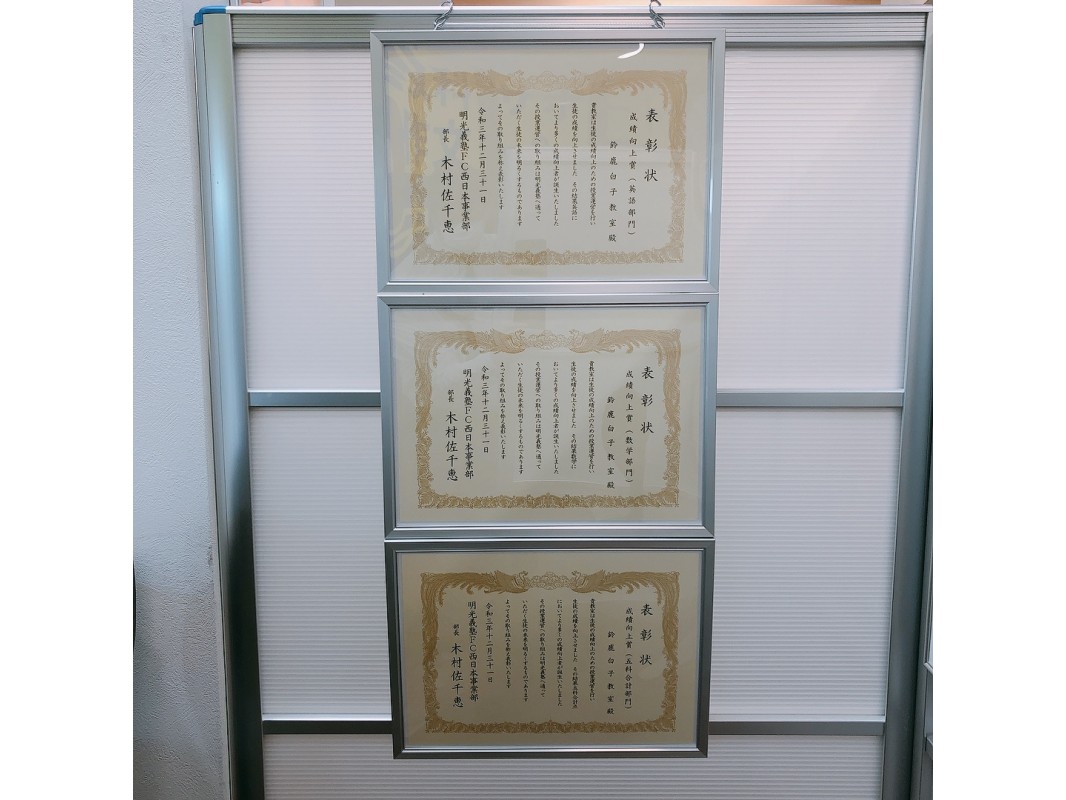 表彰状
成績向上賞（英語部門）
鈴鹿白子教室殿
貴教室は生徒の成績向上のための授業運営を行い
生徒の成績を向上させました その結果英語に
おいてより多くの成績向上者が誕生いたしました
その授業運営への取り組みは明光義塾へ通って
いただく生徒の未来を明るくするものであります
よってその取り組みを称え表彰いたします
令和三年十二月三十一日
明光義塾FC西日本事業部
部長 木村佐千恵
表彰状
成績向上賞（数学部門）
鈴鹿白子教室殿
貴教室は生徒の成績向上のための授業運営を行い
生徒の成績を向上させました その結果数学に
おいてより多くの成績向上者が誕生いたしました
その授業運営への取り組みは明光義塾へ通って
いただく生徒の未来を明るくするものであります
よってその取り組みを称え表彰いたします
令和三年十二月三十一日
明光義塾FC西日本事業部
部長 木村佐千恵
表彰状
成績向上賞（五科合計部門）
鈴鹿白子教室殿
貴教室は生徒の成績向上のための授業運営を行い
生徒の成績を向上させました その結果五科合計点
においてより多くの成績向上者が誕生いたしました
その授業運営への取り組みは明光義塾へ通って
いただく生徒の未来を明るくするものであります
よってその取り組みを称え表彰いたします
令和三年十二月三十一日
明光義塾FC西日本事業部
部長 木村佐千恵